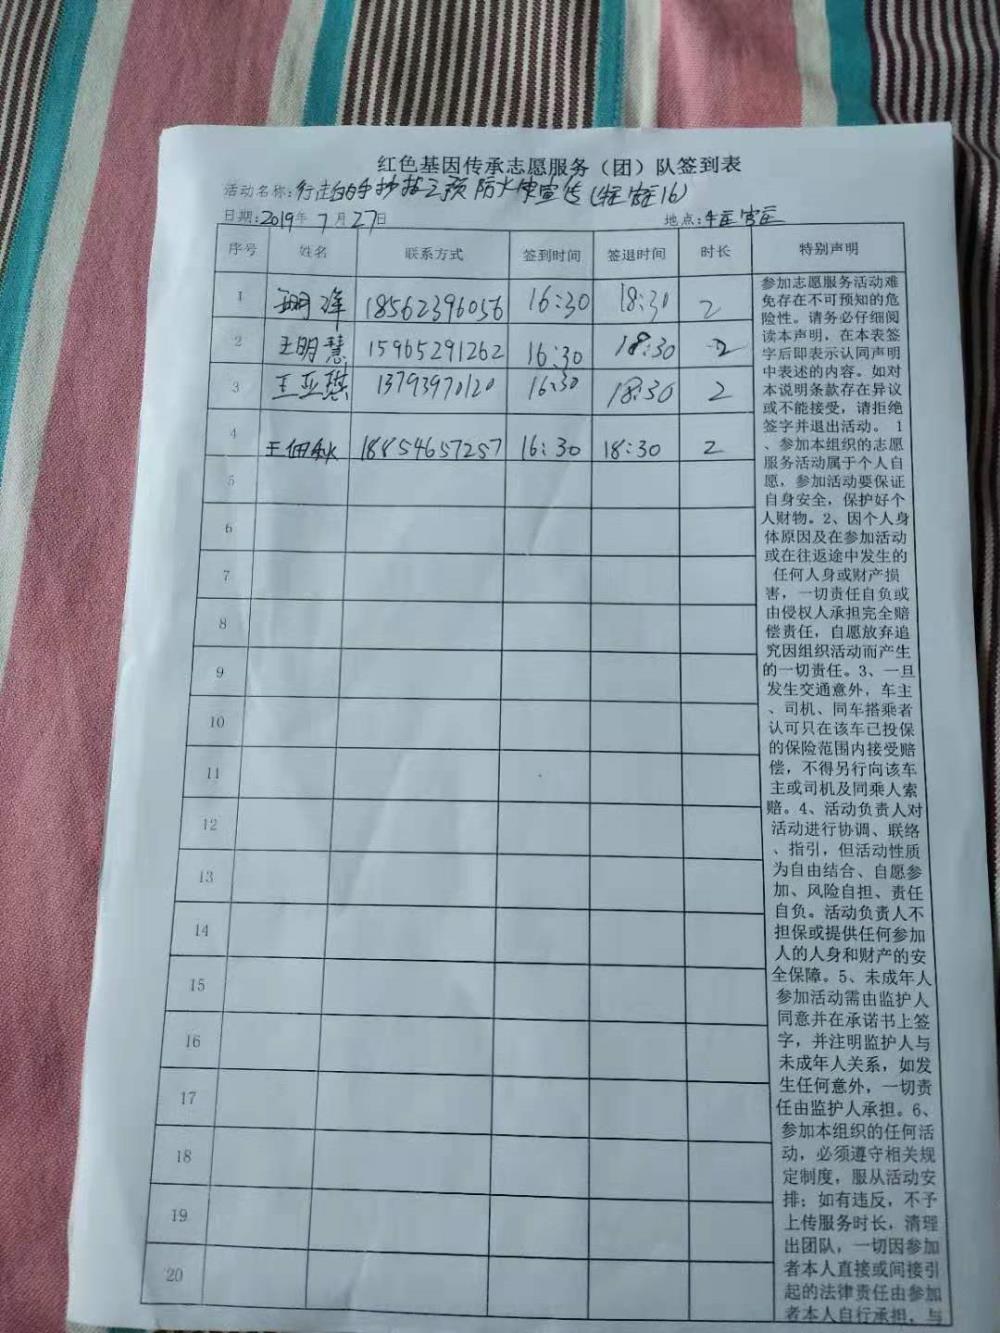 红色基因传承志愿服务（团）队签到表
活动名称:行走的手抄报之预防火灾宣传(牛庄官庄16)
日期:2019年 7月27日 地点:牛庄官庄
序号 姓名 联系方式 签到时间 签退时间 时长 特别声明
1 18562396056 16:30 18:30 2
2 王明慧 15965291262 16:30 18:30 2
3 王亚琪 13793970120 16:30 18:30 2
4 王佃秋 18854657257 16:30 18:30 2
5
6
7
8
9
10
11
12
13
14
15
16
17
18
19
20
参加志愿服务活动难
免存在不可预知的危
险性。请务必仔细阅
读本声明，在本表签
字后即表示认同声明
中表述的内容。如对
本说明条款存在异议
或不能接受，请拒绝
签字并退出活动。 1
、参加本组织的志愿
服务活动属于个人自
愿，参加活动要保证
自身安全，保护好个
人财物。2、因个人身
体原因及在参加活动
或在往返途中发生的
任何人身或财产损
害，一切责任自负或
由侵权人承担完全赔
偿责任，自愿放弃追
究因组织活动而产生
的一切责任。3、一旦
发生交通意外，车主
、司机、同车搭乘者
认可只在该车已投保
的保险范围内接受赔
偿，不得另行向该车
主或司机及同乘人索
赔。4、活动负责人对
活动进行协调、联络
、指引，但活动性质
为自由结合、自愿参
加、风险自担、责任
自负。活动负责人不
担保或提供任何参加
人的人身和财产的安
全保障。5、未成年人
参加活动需由监护人
同意并在承诺书上签
字，并注明监护人与
未成年人关系，如发
生任何意外，一切责
任由监护人承担。6、
参加本组织的任何活
动，必须遵守相关规
定制度，服从活动安
排；如有违反，不予
上传服务时长，清理
出团队，一切因参加
者本人直接或间接引
起的法律责任由参加
者本人自行承担，与